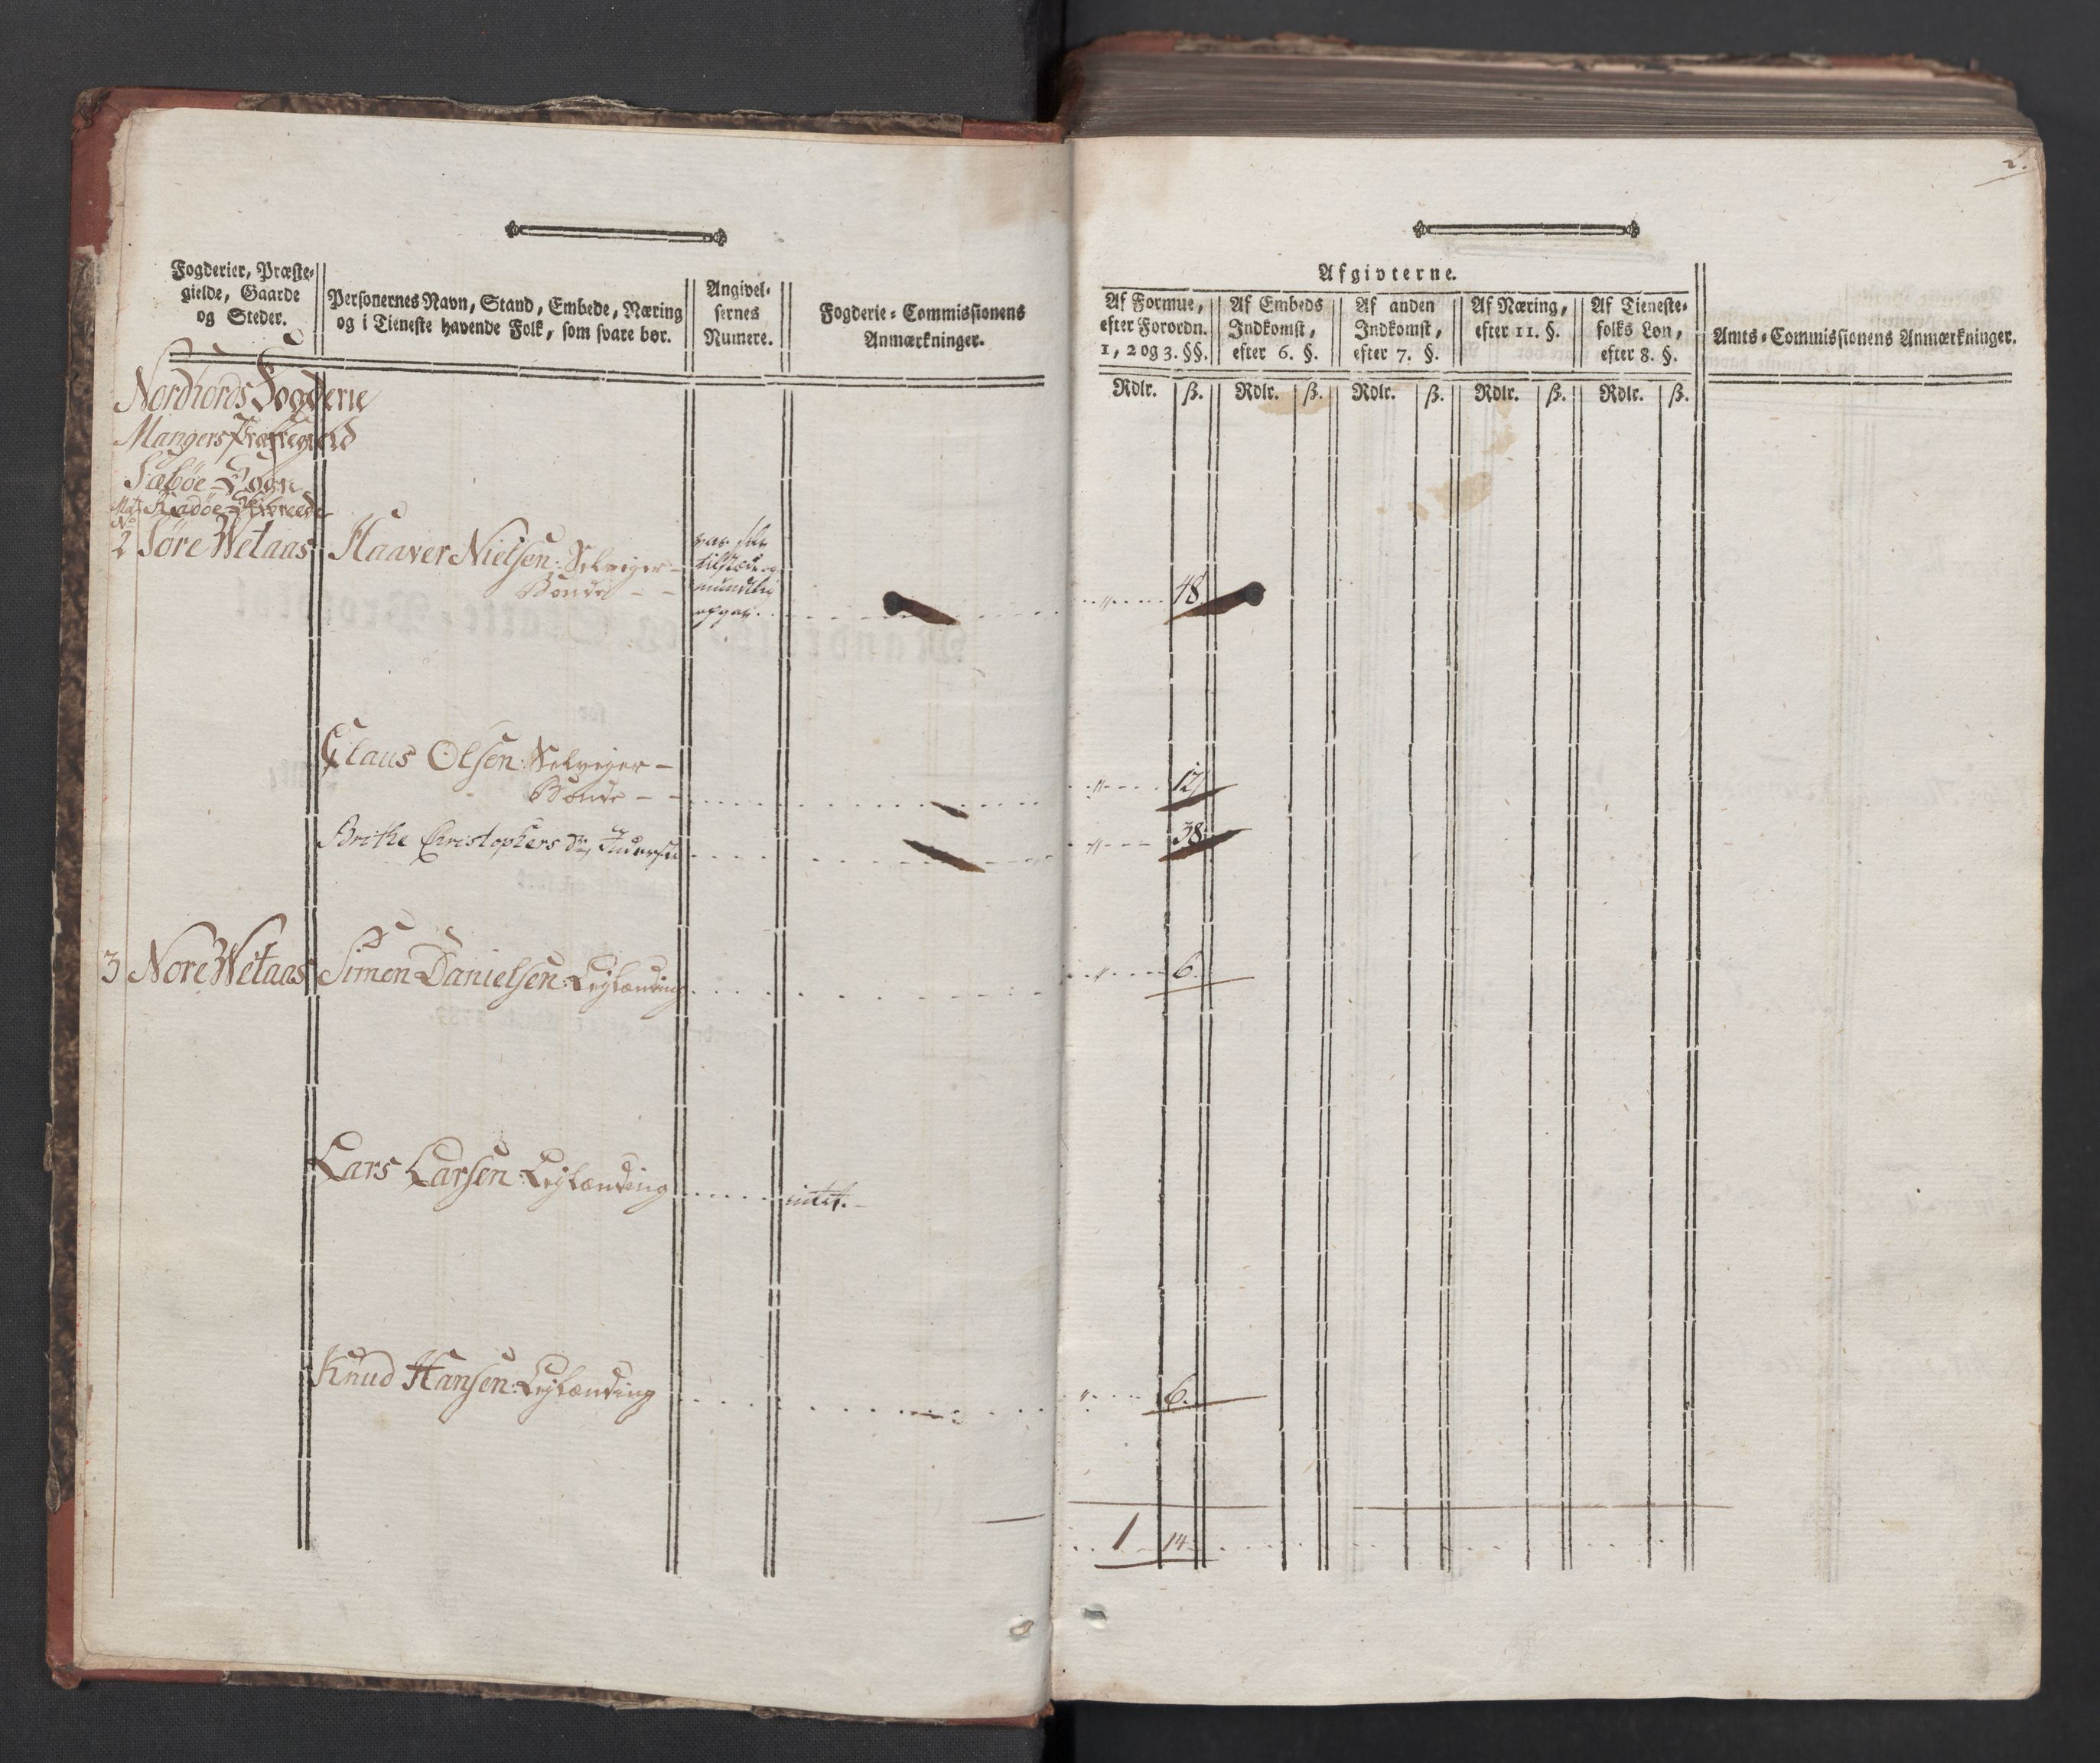 2.
Fogderier, Præste-
gielde, Gaarde
og Steder.
Personernes Navn, Stand, Embede, Næring
og i Tieneste havende Folk, som svare bør.
Angivel-
sernes
Numere.
Fogderie-Commissionens
Anmærkninger.
Afgivterne.
Af Formue,
efter Forordn.
1, 2 og 3. §§.
Af Embeds
Indkomst,
efter 6. §.
Af anden
Indkomst,
efter 7. §.
Af Næring,
efter 11. §.
Af Tieneste-
folks Løn,
efter 8. §.
Amts-Commissionens Anmærkninger.
Rdlr. ß. Rdlr. ß. Rdlr. ß. Rdlr. ß. Rdlr. ß.
Nordhords Fogderie
Mangers Præstegield
Sæbøe-Sogn
Radøe-Skibrede
No
2 Søre Wetaas Haaver Nielsen: Selveiger-
Bonde - -
var selv
tilstæde og
mundtlig
opgav. 48.
Claus Olsen: Selveiger-
Bonde - - 12
Brithe Christophers Dr, Inderste 38
3 Nore Wetaas Simon Danielsen: Leylænding 6.
Lars Larsen: Leylænding intet.
Knud Hansen: Leylænding 6.
1 14.